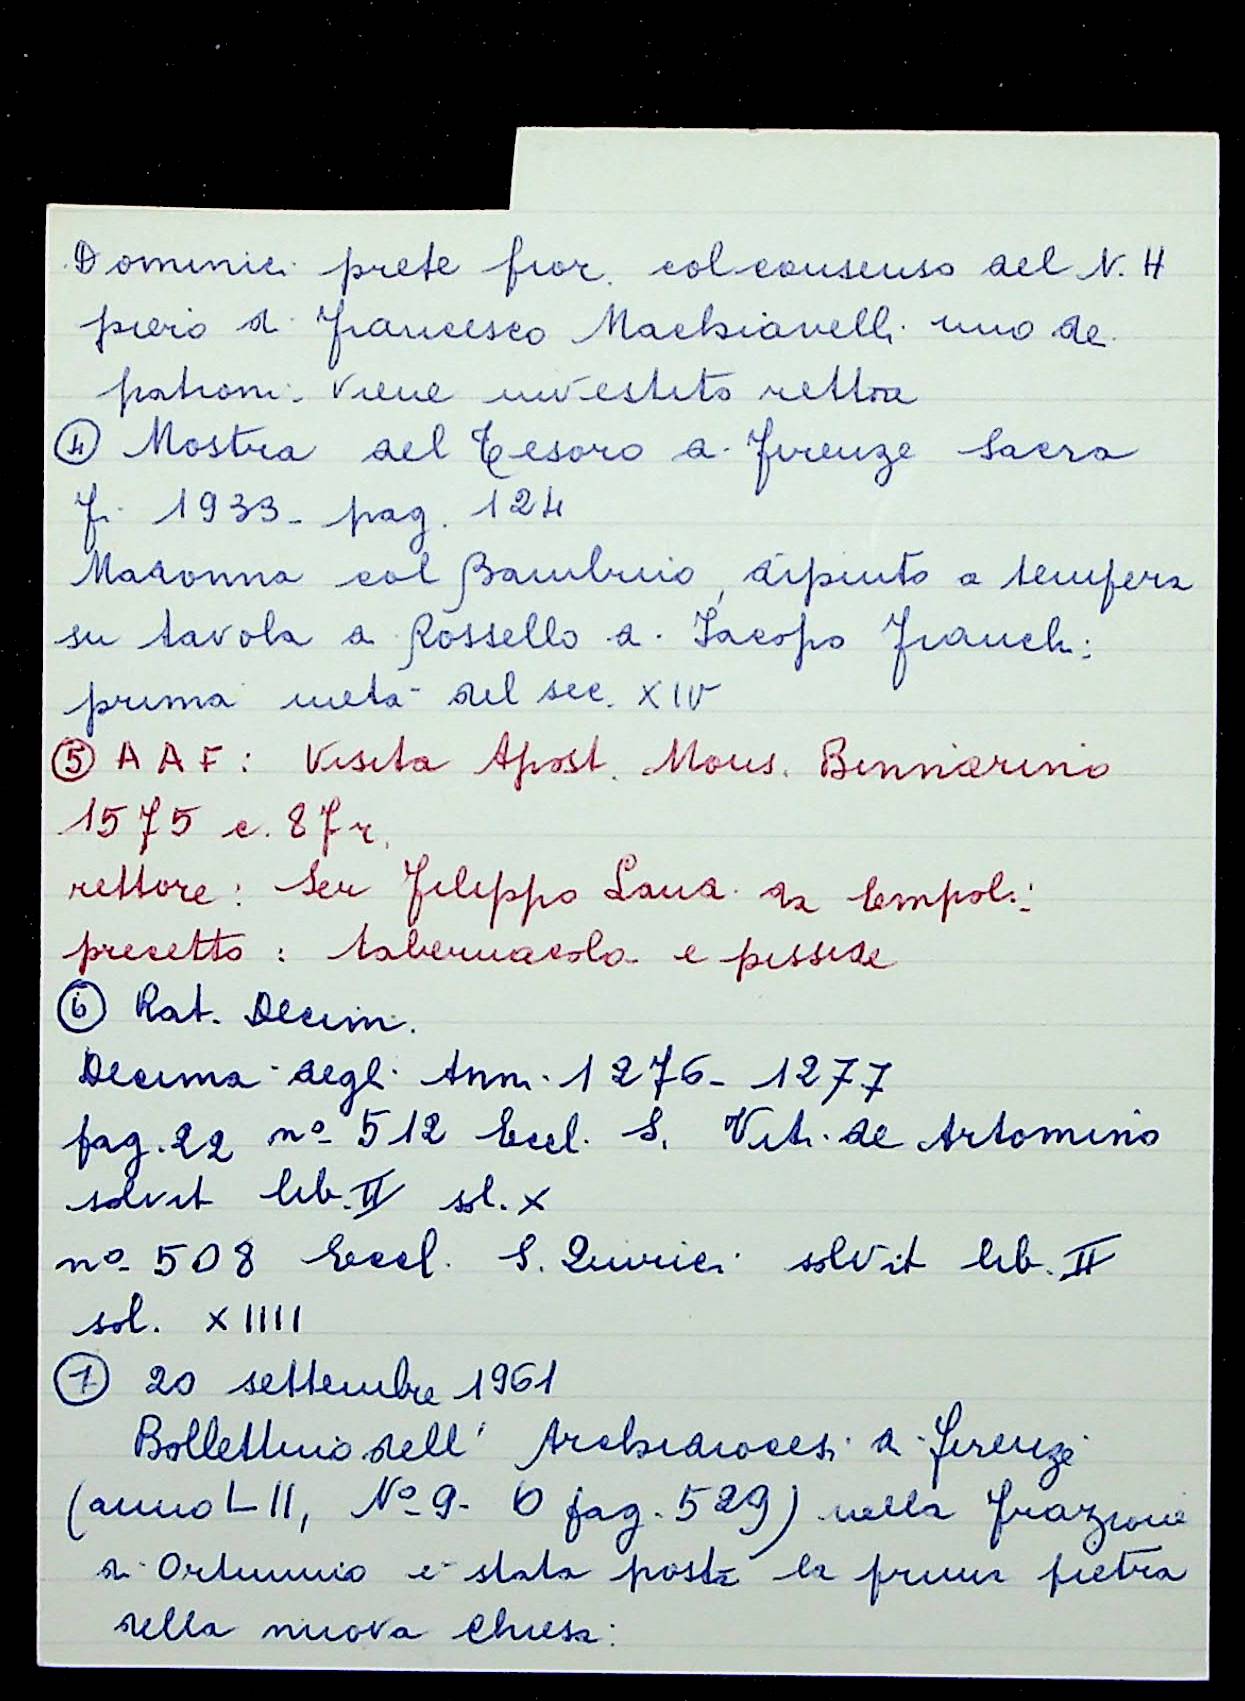 Dominici prete fior. col consenso del N. H
piero di Francesco Machiavelli uno dei
patroni. Viene investito rettore
④ Mostra del Tesoro di Firenze Sacra
Fi 1933 - pag. 124
Madonna col Bambino, dipinto a tempera
su tavola di Rossello di Jacopo Franchi:
prima metà del sec. XIV
⑤ A A F: Visita Apost. Mons. Binnarino
1575 c. 87r.
rettore: Ser Filippo Landi da Empoli:
precetto: tabernacolo e pisside
⑥ Rat. Decim.
Decima degli Anni 1276 - 1277
pag. 22 nº 512 Eccl. S. Viti de Artomino
solvit lib. II sl. X
nº 508 Eccl. S. Quirici solvit lib. II
sol. XIIII
⑦ 20 settembre 1961
Bollettino dell' Archidiocesi di Firenze
(anno LII, Nº 9- 10 pag. 529) nella frazione
di Ortimino è stata posta la prima pietra
della nuova Chiesa: